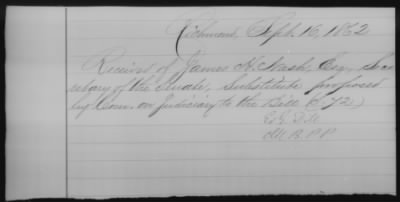 Richmond Sept. 16, 1862
Received of James H. Nash, Esq, Sec
retary of the Senate, Substitute proposed
by Com. on Judiciary to the Bill (S. 72)